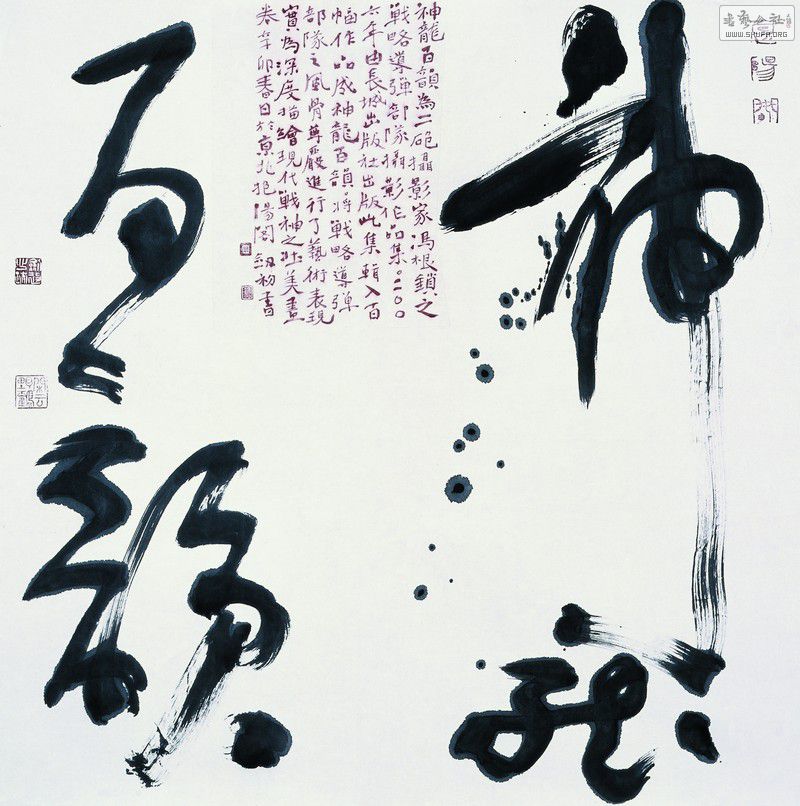 書藝公社
WWW.SHUFA.ORG
神龍
神龍百韻為二砲攝影家馮根鎖之
戰略導彈部隊攝影作品集。二〇〇
六年由長城出版社出版此集輯入百
幅作品成神龍百韻。將戰略導彈
部隊之風骨尊嚴進行了藝術表現
實為深度描繪現代戰神之壯美畫
卷辛卯春日於京兆抱陽閣劔初書
百韻